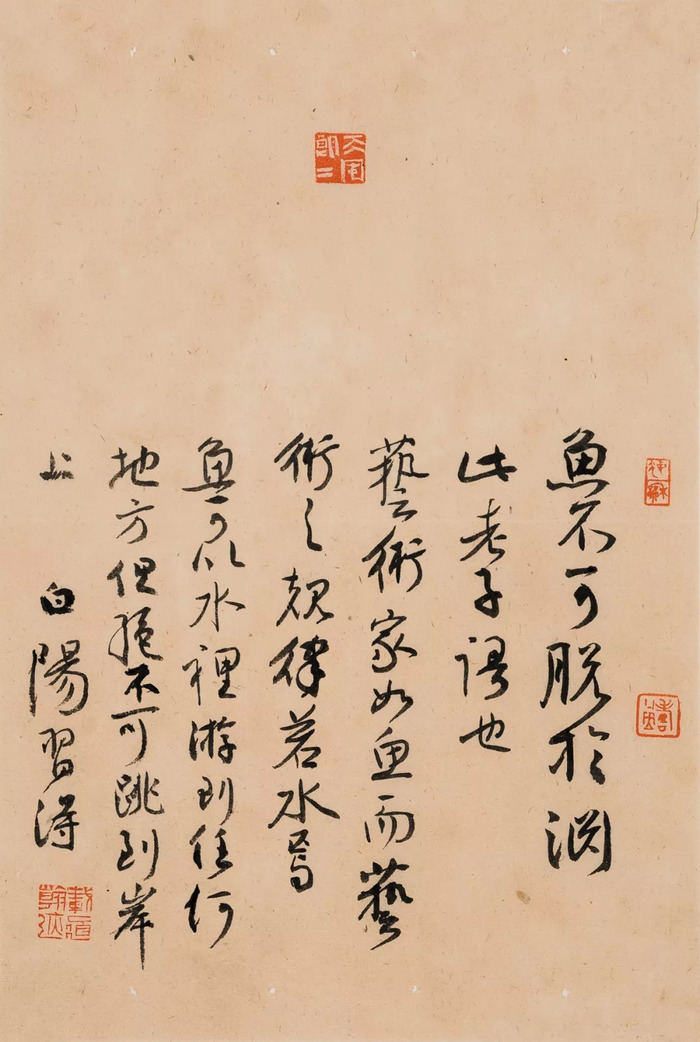 魚不可脱於渊
此老子語也
藝術家如魚而藝
術之規律若水焉
魚可以水裡游到任何
地方但绝不可跳到岸
上 白陽習得